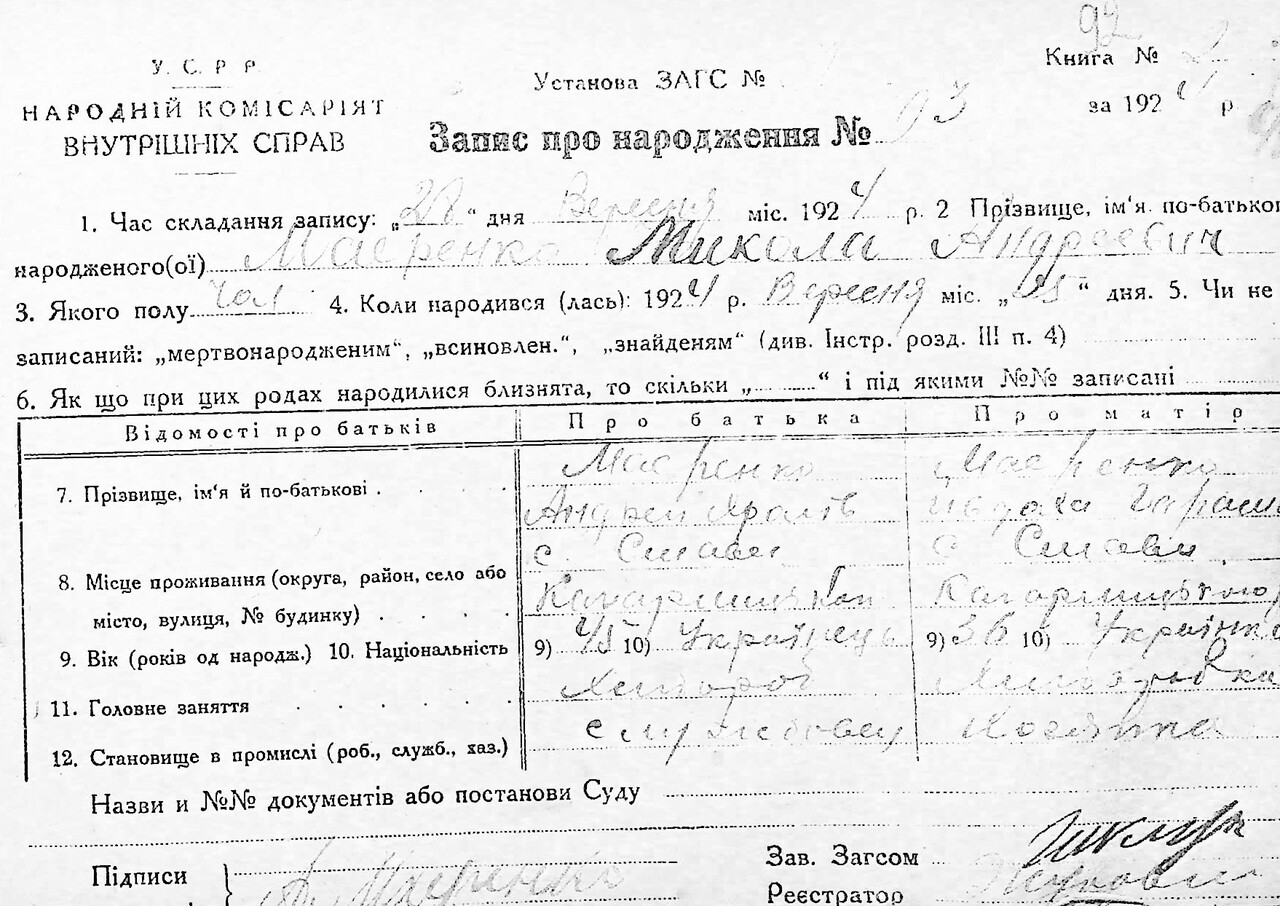 92
У. С. Р. Р.
Установа ЗАГС №
Книга № 2
НАРОДНІЙ КОМІСАРІЯТ
за 1924 р.
ВНУТРІШНІХ СПРАВ
Запис про народження № 93
1. Час складання запису: „28" дня Вересня міс. 1924 р. 2 Прізвище, ім'я. по-батькові
народженого(ої) Маєренко Микола Андреевич
3. Якого полу чол 4. Коли народився (лась): 1924 р. Вересня міс. „25" дня. 5. Чи не
записаний: „мертвонародженим", „всиновлен.", „знайденям" (див. Інстр. розд. III п. 4)
6. Як що при цих родах народилися близнята, то скільки „ " і під якими №№ записані
Відомості про батьків Про батька Про матір
7. Прізвище, ім'я й по-батькові . Маєренко Маєренко
Андрей
с. с
8. Місце проживання (округа, район, село або
місто, вулиця, № будинку)
9. Вік (років од народж.) 10. Національність 9) 45 10) Українець 9) 36 10) Українка
11. Головне заняття Хлібороб
12. Становище в промислі (роб., служб., хаз.)
Назви и №№ документів або постанови Суду
Підписи Маєренко
Зав. Загсом
Реєстратор